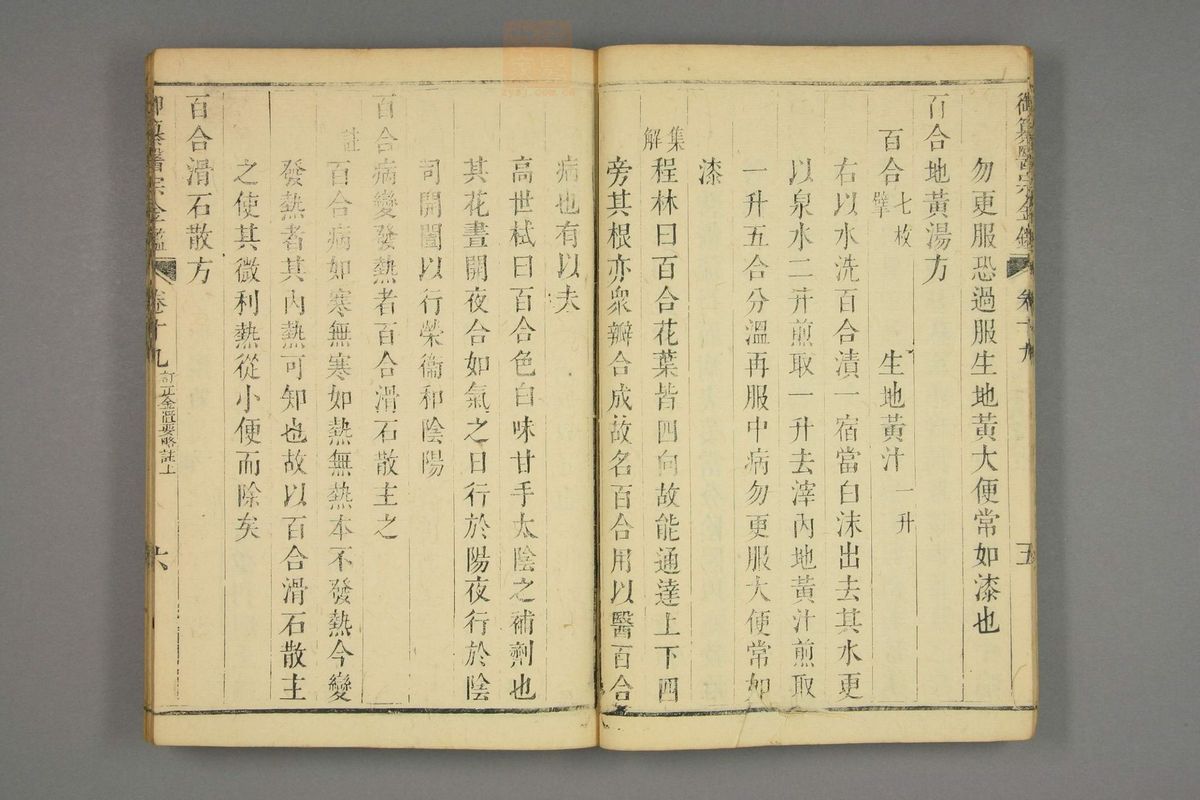 御纂醫宗金鑑 卷十九 五
勿更服恐過服生地黃大便常如漆也
百合地黃湯方
百合七枚擘 生地黃汁一升
右以水洗百合漬一宿當白沫出去其水更
以泉水二升煎取一升去滓內地黃汁煎取
一升五合分溫再服中病勿更服大便常如
漆
集解程林曰百合花葉皆四向故能通達上下四
旁其根亦衆瓣合成故名百合用以醫百合
病也有以夫
高世栻曰百合色白味甘手太陰之補劑也
其花晝開夜合如氣之日行於陽夜行於陰
司開闔以行榮衞和陰陽
百合病變發熱者百合滑石散主之
註百合病如寒無寒如熱無熱本不發熱今變
發熱者其內熱可知也故以百合滑石散主
之使其微利熱從小便而除矣
百合滑石散方
御纂醫宗金鑑 卷十九 訂正金匱要略註上 六